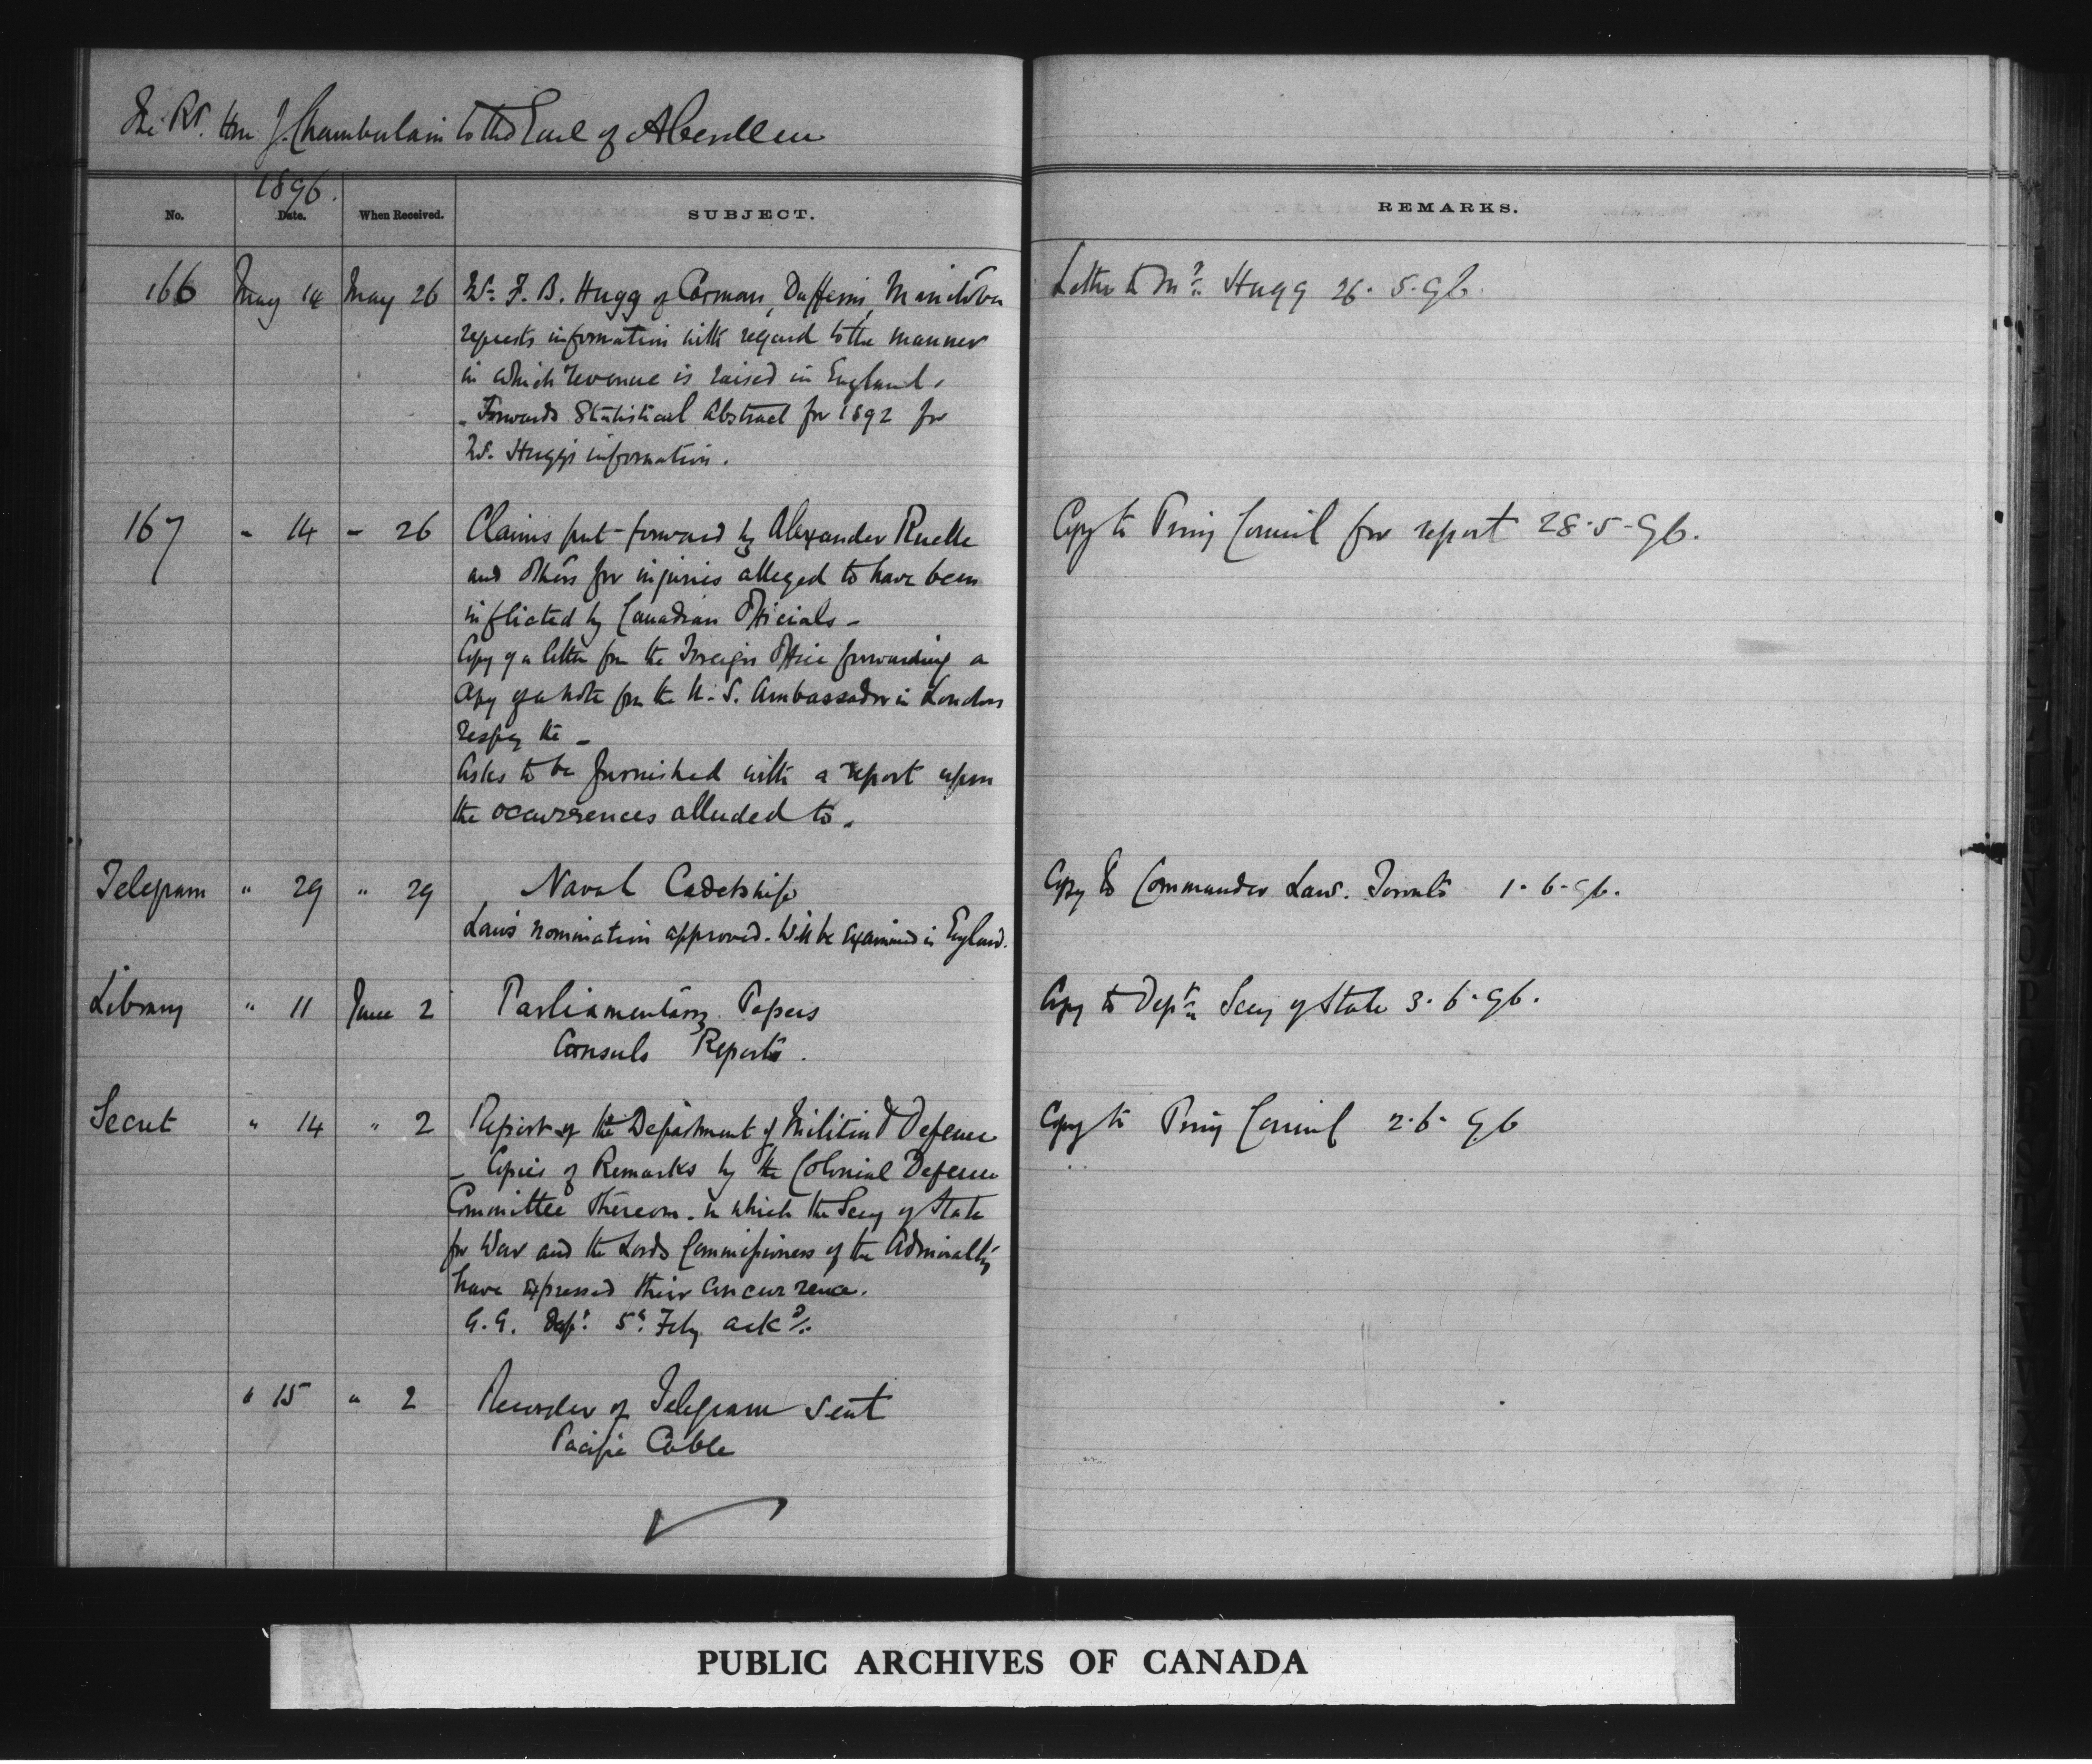 The Rt. Hon J. Chamberlain to the Earl of Aberdeen
1896.
No. Date. When Received. SUBJECT. REMARKS.
166 May 14 May 26 Mr. F. B. Hugg of Carman, Dufferin, Manitoba Letter to Mr. Hugg 26. 5. 96.
requests information with regard to the manner
in which revenue is raised in England.
- Forwards Statistical Abstract for 1892 for
Mr. Hugg's information.
167 " 14 " 26 Claims put forward by Alexander Ruelle Copy to Privy Council for report 28-5-96.
and others for injuries alleged to have been
inflicted by Canadian Officials -
Copy of a letter fm the Foreign Office forwarding a
copy of a note fm the U.S. Ambassador in London
respg the -
Asks to be furnished with a report upon
the occurrences alluded to.
Telegram " 29 " 29 Naval Cadetship Copy to Commander Law. Toronto 1-6-96.
Law's nomination approved. Will be examined in England.
Library " 11 June 2 Parliamentary Papers Copy to Dept. Secy of State 3. 6. 96.
Consuls Reports.
Secret " 14 " 2 Report of the Department of Militia & Defence Copy to Privy Council 2. 6. 96
- Copies of Remarks by the Colonial Defence
Committee thereon. in which the Secy of State
for War and the Lords Commissioners of the Admiralty
have expressed their concurrence.
G.G. Desp. 5th Feby ackd.
" 15 " 2 Recorder of Telegram sent
Pacific Cable
PUBLIC ARCHIVES OF CANADA